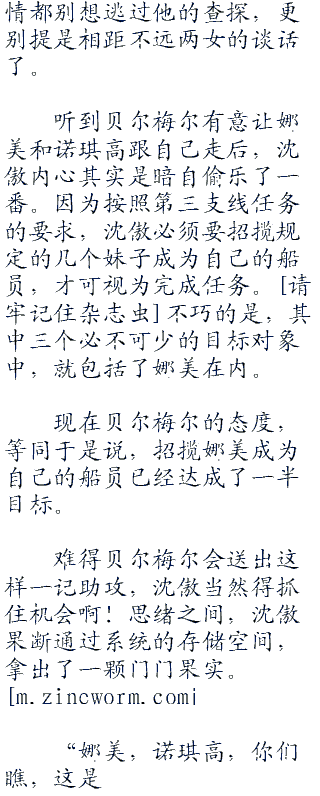 情都别想逃过他的查探，更
别提是相距不远两女的谈话
了。
听到贝尔梅尔有意让娜
美和诺琪高跟自己走后，沈
傲内心其实是暗自偷乐了一
番。因为按照第三支线任务
的要求，沈傲必须要招揽规
定的几个妹子成为自己的船
员，才可视为完成任务。[请
牢记住杂志虫]不巧的是，其
中三个必不可少的目标对象
中，就包括了娜美在内。
现在贝尔梅尔的态度，
等同于是说，招揽娜美成为
自己的船员已经达成了一半
目标。
难得贝尔梅尔会送出这
样一记助攻，沈傲当然得抓
住机会啊！思绪之间，沈傲
果断通过系统的存储空间，
拿出了一颗门门果实。
[m.zincworm.com|
“娜美，诺琪高，你们
瞧，这是